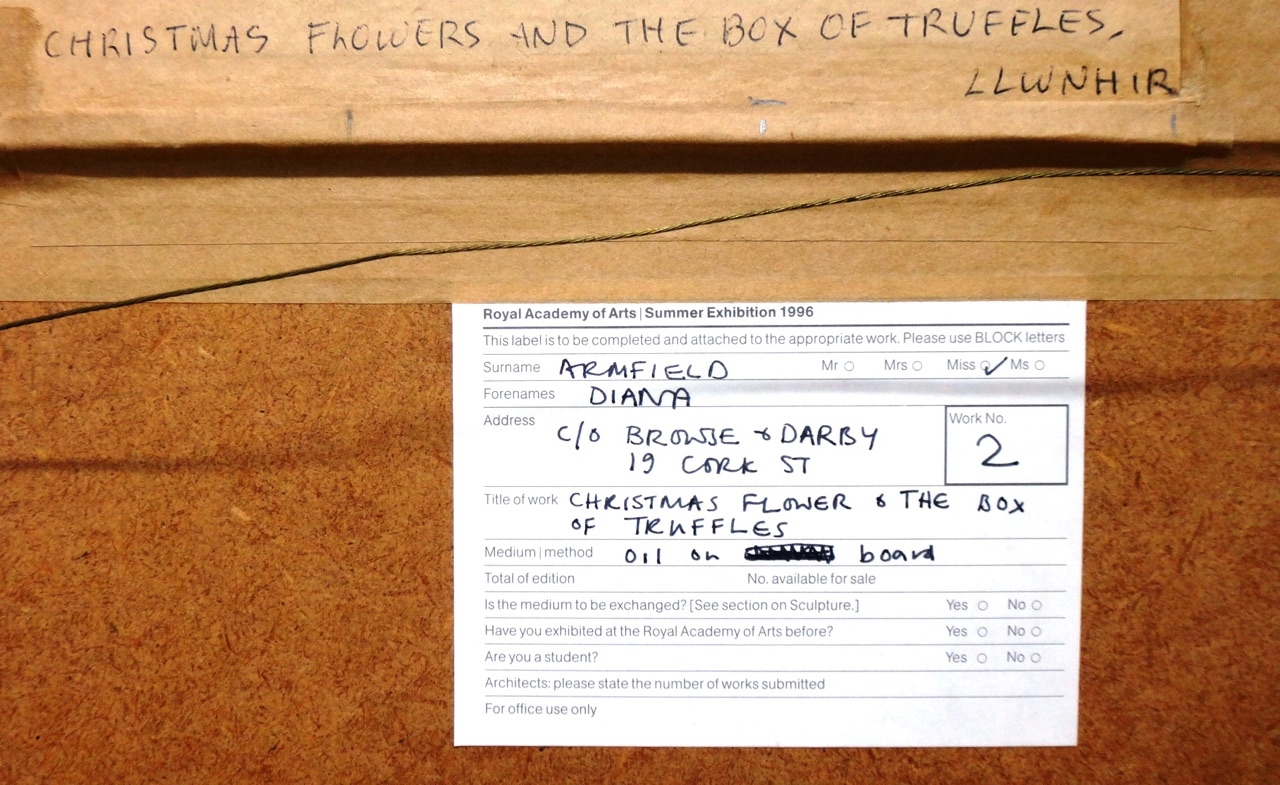 CHRISTMAS FLOWERS AND THE BOX OF TRUFFLES.
LLWNHIR
Royal Academy of Arts | Summer Exhibition 1996
This label is to be completed and attached to the appropriate work. Please use BLOCK letters
Surname ARMFIELD Mr Mrs Miss ✓ Ms
Forenames DIANA
Address C/O BROWSE & DARBY
19 CORK ST
Work No.
2
Title of work CHRISTMAS FLOWER & THE BOX
OF TRUFFLES
Medium | method oil on board
Total of edition No. available for sale
Is the medium to be exchanged? [See section on Sculpture.] Yes No
Have you exhibited at the Royal Academy of Arts before? Yes No
Are you a student? Yes No
Architects: please state the number of works submitted
For office use only